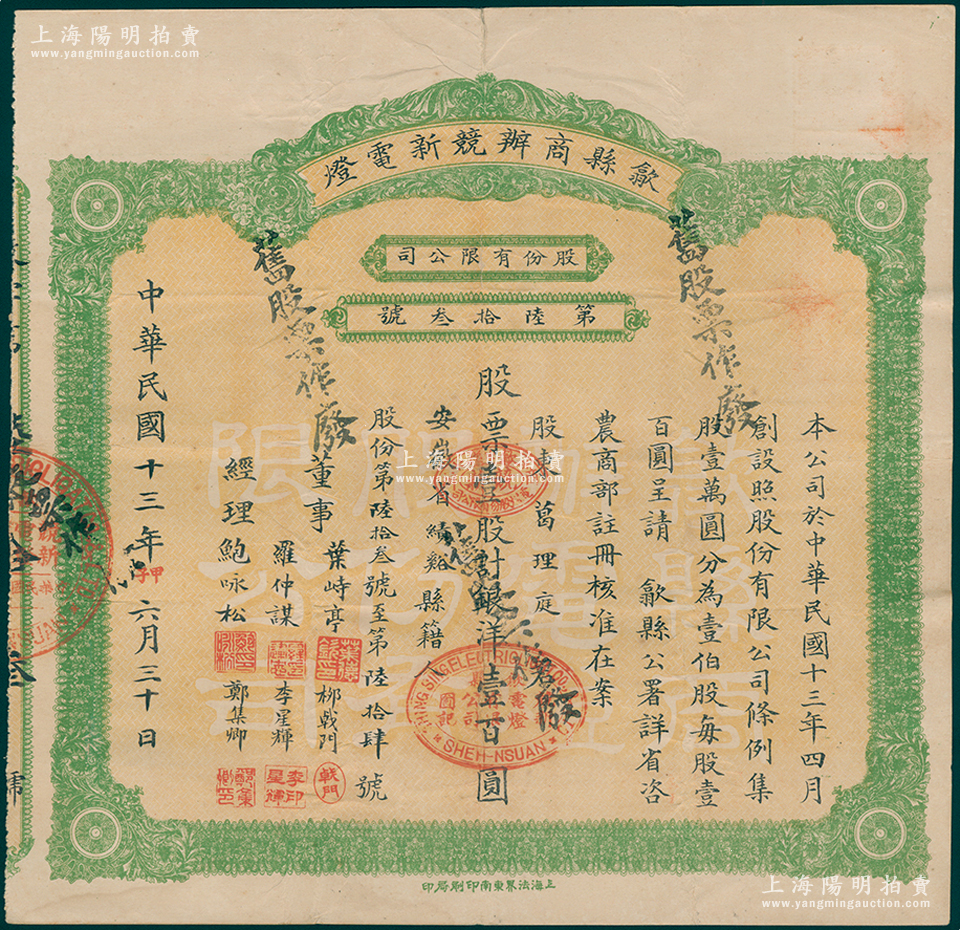 上海陽明拍賣
www.yangmingauction.com
上海陽明拍賣
www.yangmingauction.com
歙縣商辦競新電燈
股份有限公司
第陸拾叁號
本公司於中華民國十三年四月
創設照股份有限公司條例集
股壹萬圓分為壹伯股每股壹
百圓呈請 歙縣公署詳省咨
農商部註冊核准在案
股東葛理庭
股票壹股計銀洋壹百圓
安徽省績谿縣籍人
股份第陸拾叁號至第陸拾肆號
董事 葉峙亭 柳戟門
羅仲謀 李星輝
經理鮑咏松 鄭集卿
中華民國十三年甲子六月三十日
舊股票作廢
舊股票作廢
戟門
李印星輝
電燈
公司
圖記
SHEH-HSUAN
上海陽明拍賣
www.yangmingauction.com
上海法界東南印刷局印
上海陽明拍賣
www.yangmingauction.com